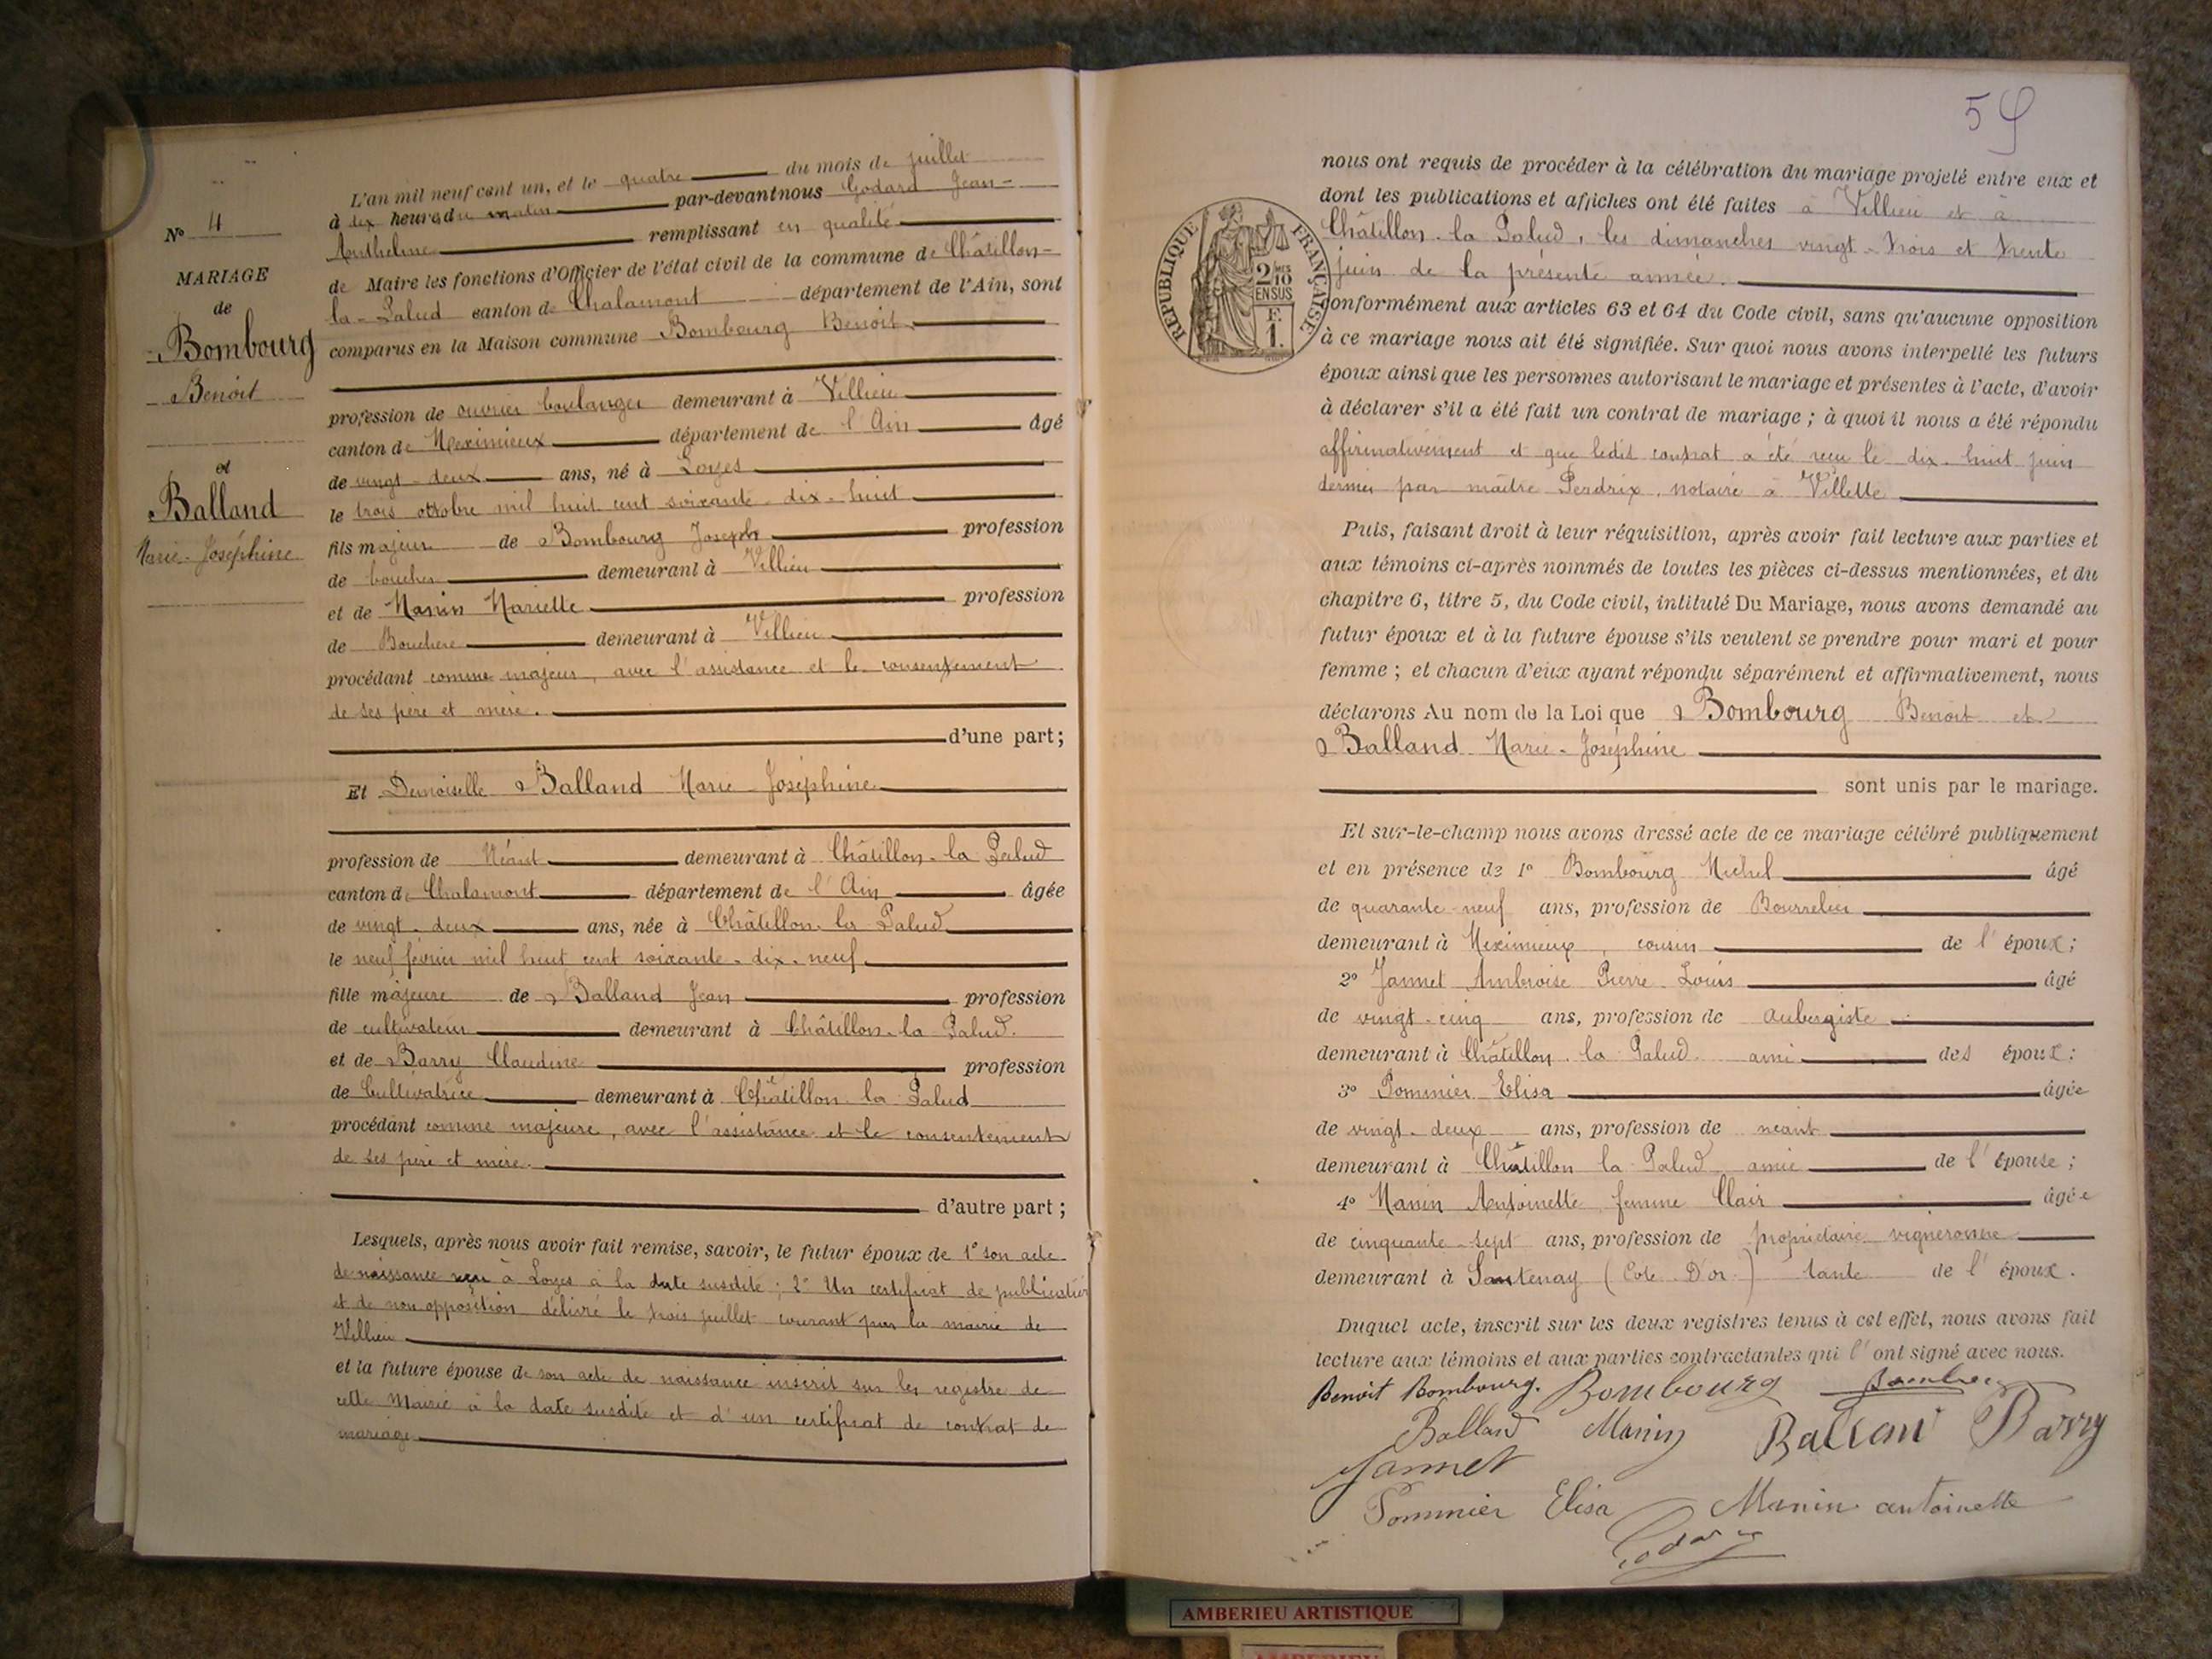 N° 4
MARIAGE
de
Bombourg
Benoit
et
Balland
Marie-Joséphine
L'an mil neuf cent un, et le quatre du mois de juillet
à dix heures du matin par-devant nous Godard Jean-
Anthelme remplissant en qualité
de Maire les fonctions d'Officier de l'état civil de la commune de Châtillon-
la-Palud canton de Chalamont département de l'Ain, sont
comparus en la Maison commune Bombourg Benoit
profession de ouvrier boulanger demeurant à Villieu
canton de Meximieux département de l'Ain âgé
de vingt-deux ans, né à Loyes
le trois octobre mil huit cent soixante-dix-huit
fils majeur de Bombourg Joseph profession
de boucher demeurant à Villieu
et de Manin Mariette profession
de Bouchère demeurant à Villieu
procédant comme majeur, avec l'assistance et le consentement
de ses père et mère.
d'une part;
Et Demoiselle Balland Marie-Joséphine
profession de Néant demeurant à Châtillon-la Palud
canton de Chalamont département de l'Ain âgée
de vingt-deux ans, née à Châtillon-la Palud
le neuf février mil huit cent soixante-dix-neuf
fille majeure de Balland Jean profession
de cultivateur demeurant à Châtillon-la Palud.
et de Barry Claudine profession
de Cultivatrice demeurant à Châtillon-la Palud
procédant comme majeure, avec l'assistance et le consentement
de ses père et mère.
d'autre part;
Lesquels, après nous avoir fait remise, savoir, le futur époux de 1° son acte
de naissance reçu à Loyes à la date susdite; 2° Un certificat de publication
et de non opposition délivré le trois juillet courant par la mairie de
Villieu
et la future épouse de son acte de naissance inscrit sur les registre de
cette Mairie à la date susdite et d'un certificat de contrat de
mariage
59
RÉPUBLIQUE FRANÇAISE
2/10 EN SUS
F. 1.
nous ont requis de procéder à la célébration du mariage projeté entre eux et
dont les publications et affiches ont été faites à Villieu et à
Châtillon-la Palud, les dimanches vingt-trois et trente
juin de la présente année.
conformément aux articles 63 et 64 du Code civil, sans qu'aucune opposition
à ce mariage nous ait été signifiée. Sur quoi nous avons interpellé les futurs
époux ainsi que les personnes autorisant le mariage et présentes à l'acte, d'avoir
à déclarer s'il a été fait un contrat de mariage; à quoi il nous a été répondu
affirmativement et que ledit contrat a été reçu le dix-huit juin
dernier par maître Perdrix, notaire à Villette
Puis, faisant droit à leur réquisition, après avoir fait lecture aux parties et
aux témoins ci-après nommés de toutes les pièces ci-dessus mentionnées, et du
chapitre 6, titre 5, du Code civil, intitulé Du Mariage, nous avons demandé au
futur époux et à la future épouse s'ils veulent se prendre pour mari et pour
femme; et chacun d'eux ayant répondu séparément et affirmativement, nous
déclarons Au nom de la Loi que Bombourg Benoit et
Balland Marie-Joséphine
sont unis par le mariage.
Et sur-le-champ nous avons dressé acte de ce mariage célébré publiquement
et en présence de 1° Bombourg Michel âgé
de quarante-neuf ans, profession de Bourrelier
demeurant à Meximieux, cousin de l'époux;
2° Jannet Ambroise Pierre-Louis âgé
de vingt-cinq ans, profession de aubergiste
demeurant à Châtillon-la Palud ami des époux;
3° Pommier Elisa âgée
de vingt-deux ans, profession de néant
demeurant à Châtillon la Palud amie de l'épouse;
4° Manin Antoinette femme Clair âgée
de cinquante-sept ans, profession de propriétaire vigneronne
demeurant à Santenay (Cote D'or) tante de l'époux.
Duquel acte, inscrit sur les deux registres tenus à cet effet, nous avons fait
lecture aux témoins et aux parties contractantes qui l'ont signé avec nous.
Benoit Bombourg. Bombourg Bombourg
Balland Manin Balland Barry
Jannet
Pommier Elisa Manin antoinette
Godard
AMBERIEU ARTISTIQUE
AMBERIEU